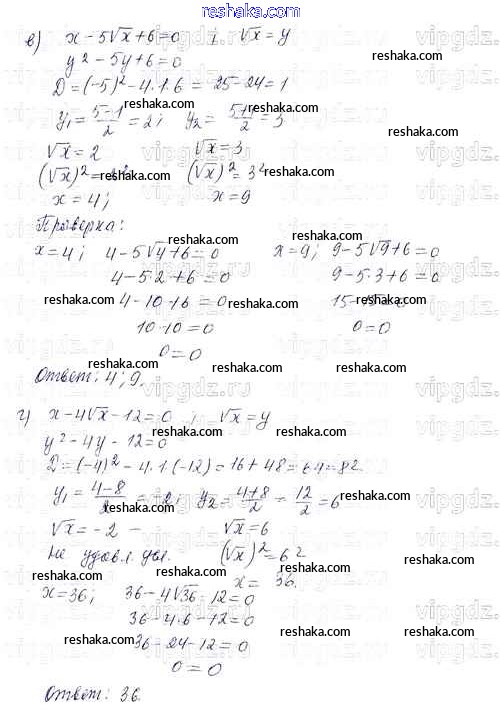 reshaka.com
в) x - 5√x + 6 = 0 ; √x = y
y² - 5y + 6 = 0
D = (-5)² - 4·1·6 = 25 - 24 = 1
reshaka.com
y₁ = (5-1)/2 = 2; y₂ = (5+1)/2 = 3
reshaka.com reshaka.com
√x = 2 √x = 3
reshaka.com reshaka.com
(√x)² = 2² (√x)² = 3²
x = 4; x = 9
Проверка:
reshaka.com reshaka.com
x = 4; 4 - 5√4 + 6 = 0 x = 9; 9 - 5√9 + 6 = 0
4 - 5·2 + 6 = 0 9 - 5·3 + 6 = 0
reshaka.com reshaka.com reshaka.com
4 - 10 + 6 = 0 15 - 15 = 0
10 - 10 = 0 0 = 0
0 = 0
reshaka.com reshaka.com
Ответ: 4; 9.
reshaka.com reshaka.com
г) x - 4√x - 12 = 0 ; √x = y
y² - 4y - 12 = 0
reshaka.com reshaka.com
D = (-4)² - 4·1·(-12) = 16 + 48 = 64 = 8²
y₁ = (4-8)/2 = -2; y₂ = (4+8)/2 = 12/2 = 6
reshaka.com reshaka.com
√x = -2 - √x = 6
не удовл. (√x)² = 6²
reshaka.com reshaka.com reshaka.com
x = 36.
x = 36; 36 - 4√36 - 12 = 0
reshaka.com reshaka.com
36 - 4·6 - 12 = 0
reshaka.com reshaka.com
36 - 24 - 12 = 0
0 = 0
Ответ: 36.
reshaka.com